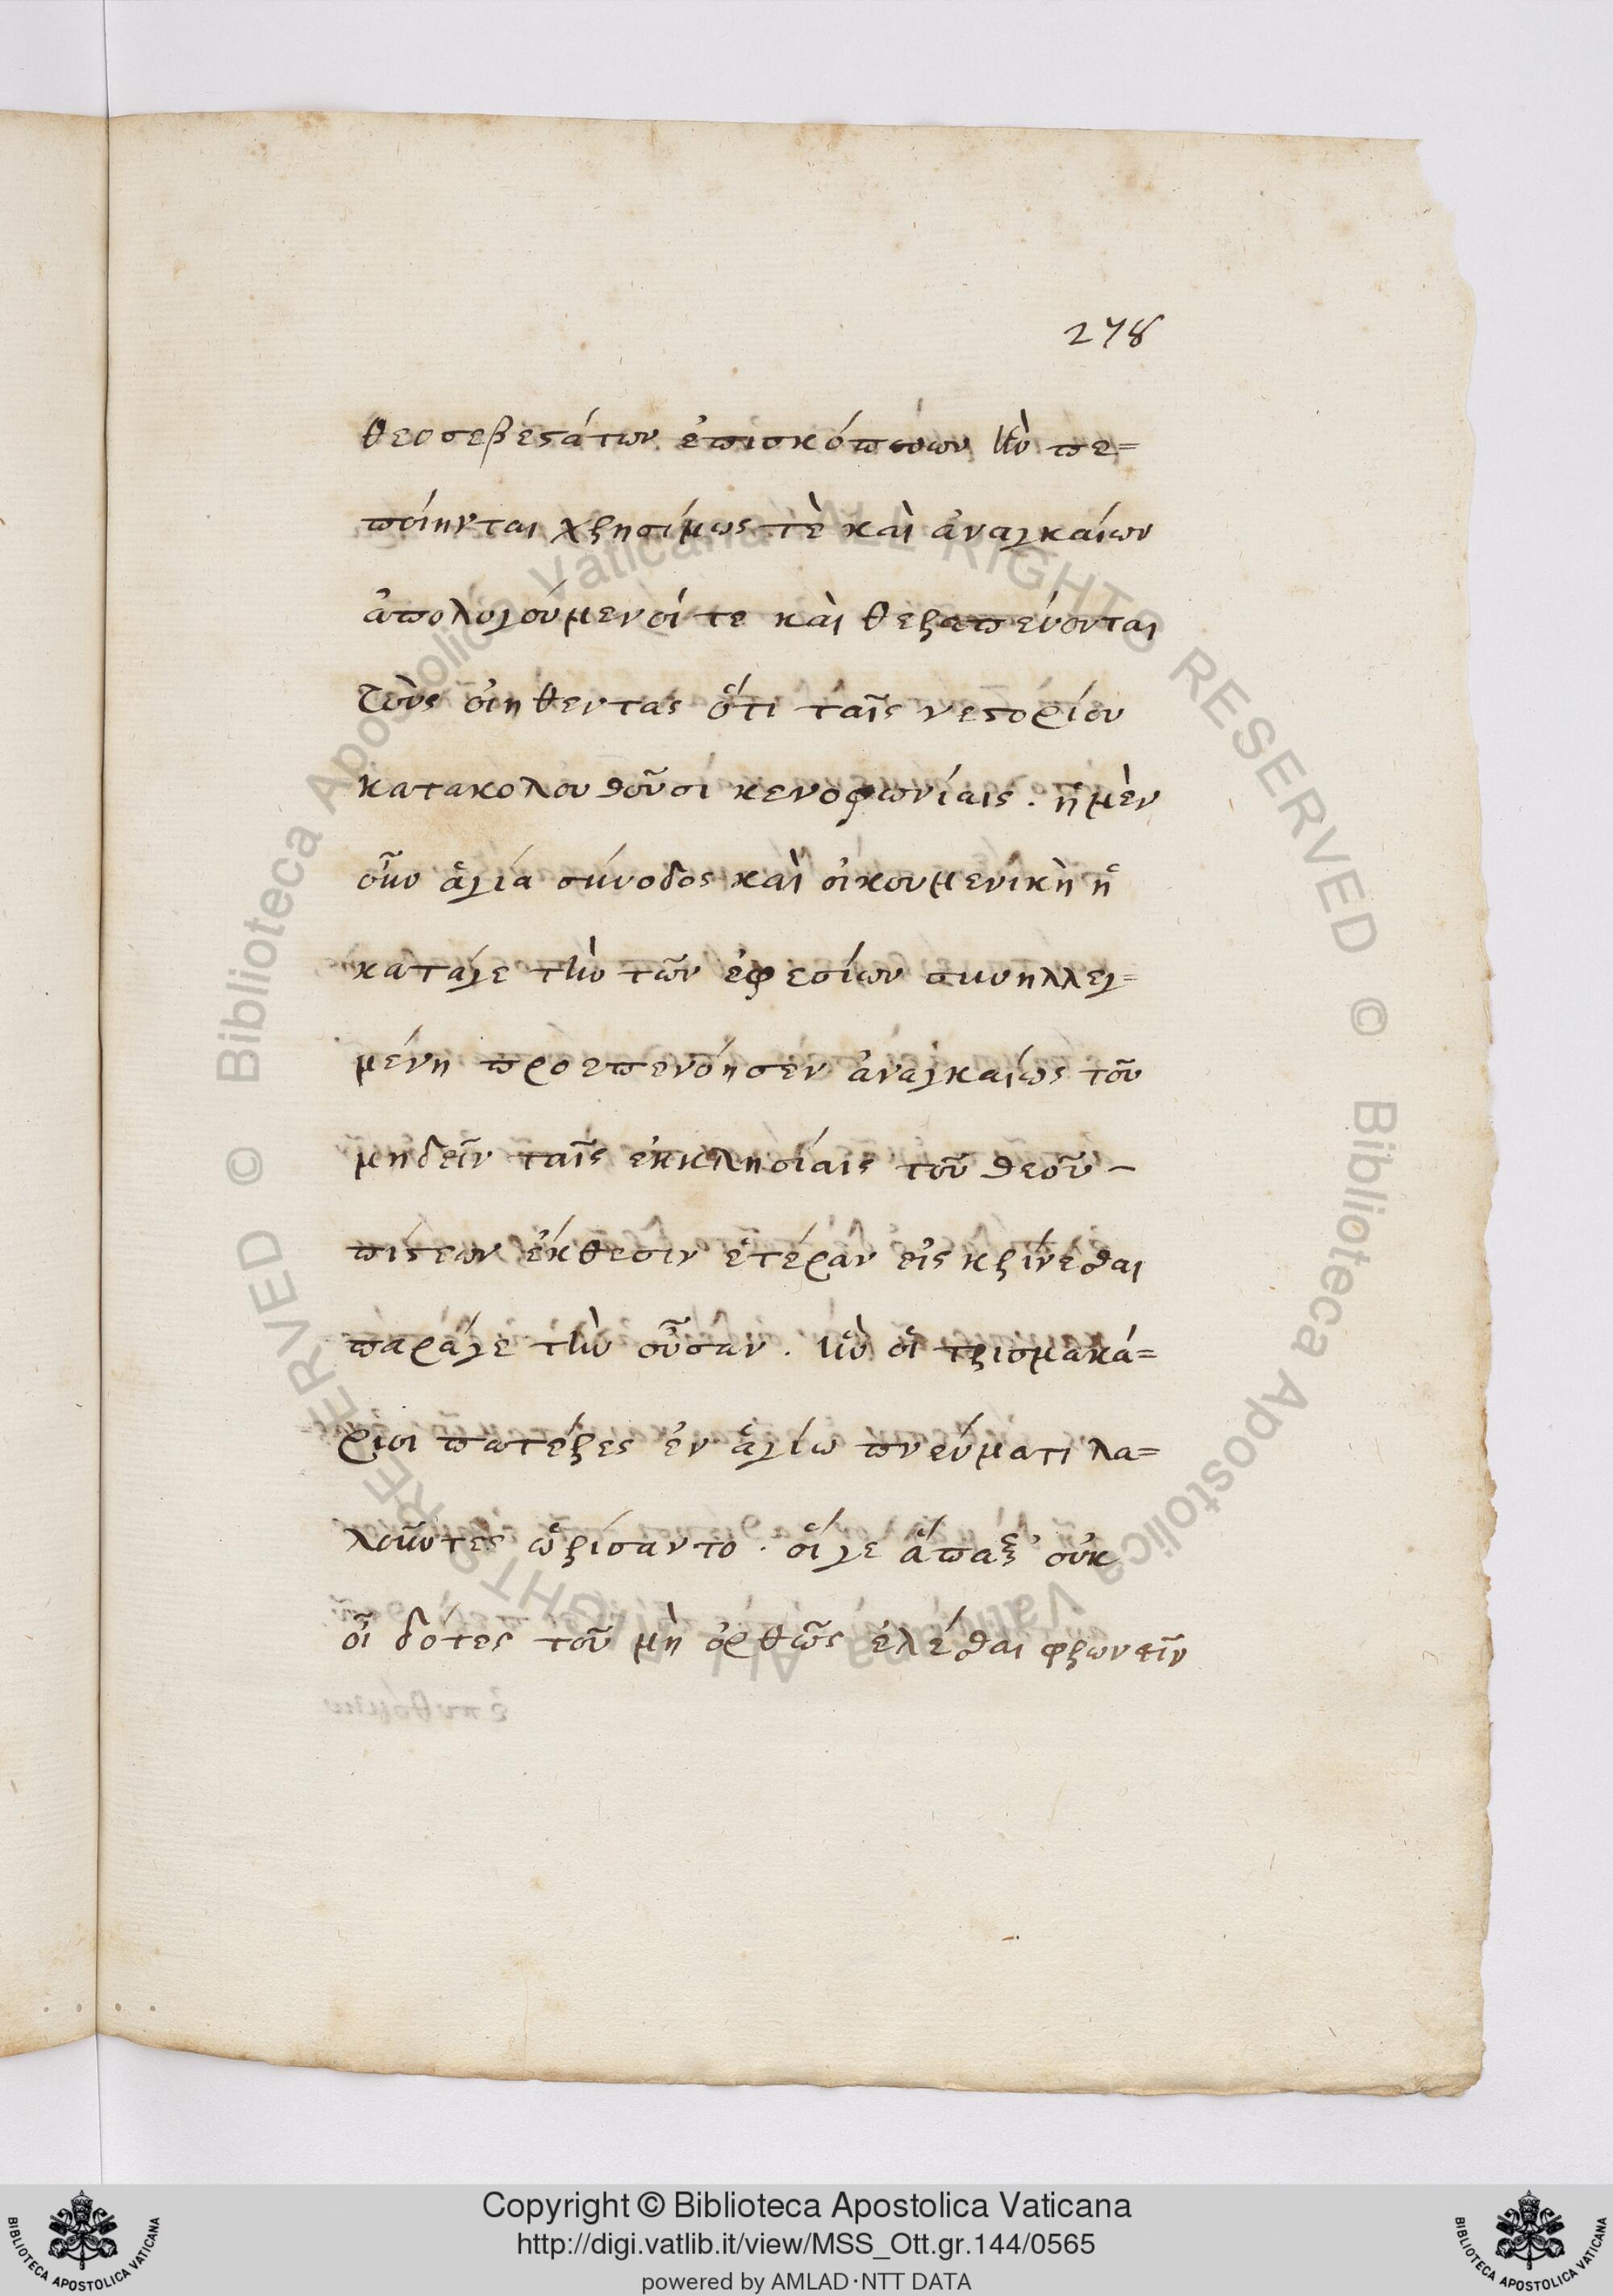 278
θεοσεβεστάτων ἐπισκόπων ἣν πε=
ποίηνται χρησίμως τὲ καὶ ἀναγκαίων
ἀπολογούμενοί τε καὶ θεραπεύονται
τοὺς οἰηθεντας ὅτι ταῖς νεστορίου
κατακολουθοῦσι κενοφωνίαις. ἡ μὲν
οὖν ἁγία σύνοδος καὶ οἰκουμενικὴ ἡ
κατάγε τὴν τῶν ἐφεσίων συνηλλεγ=
μένη προεπενόησεν ἀναγκαίως τοῦ
μηδεῖν ταῖς ἐκκλησίαις τοῦ θεοῦ –
πίστεων ἔκθεσιν ἑτέραν εἰς κρίνεσθαι
παράγε τὴν οὖσαν. ἣν οἱ τρισμακά=
ριοι πατέρες ἐν ἁγίω πνεύματι λα=
λοῦντες ὡρίσαντο. οἵγε ἅπαξ οὐκ
οἶ δότες τοῦ μὴ ὀρθῶς ἑλέσθαι φρωνεῖν
Copyright © Biblioteca Apostolica Vaticana
http://digi.vatlib.it/view/MSS_Ott.gr.144/0565
powered by AMLAD·NTT DATA
BIBLIOTECA APOSTOLICA VATICANA
BIBLIOTECA APOSTOLICA VATICANA
© Biblioteca Apostolica Vaticana ALL RIGHTS RESERVED © Biblioteca Apostolica Vaticana ALL RIGHTS RESERVED